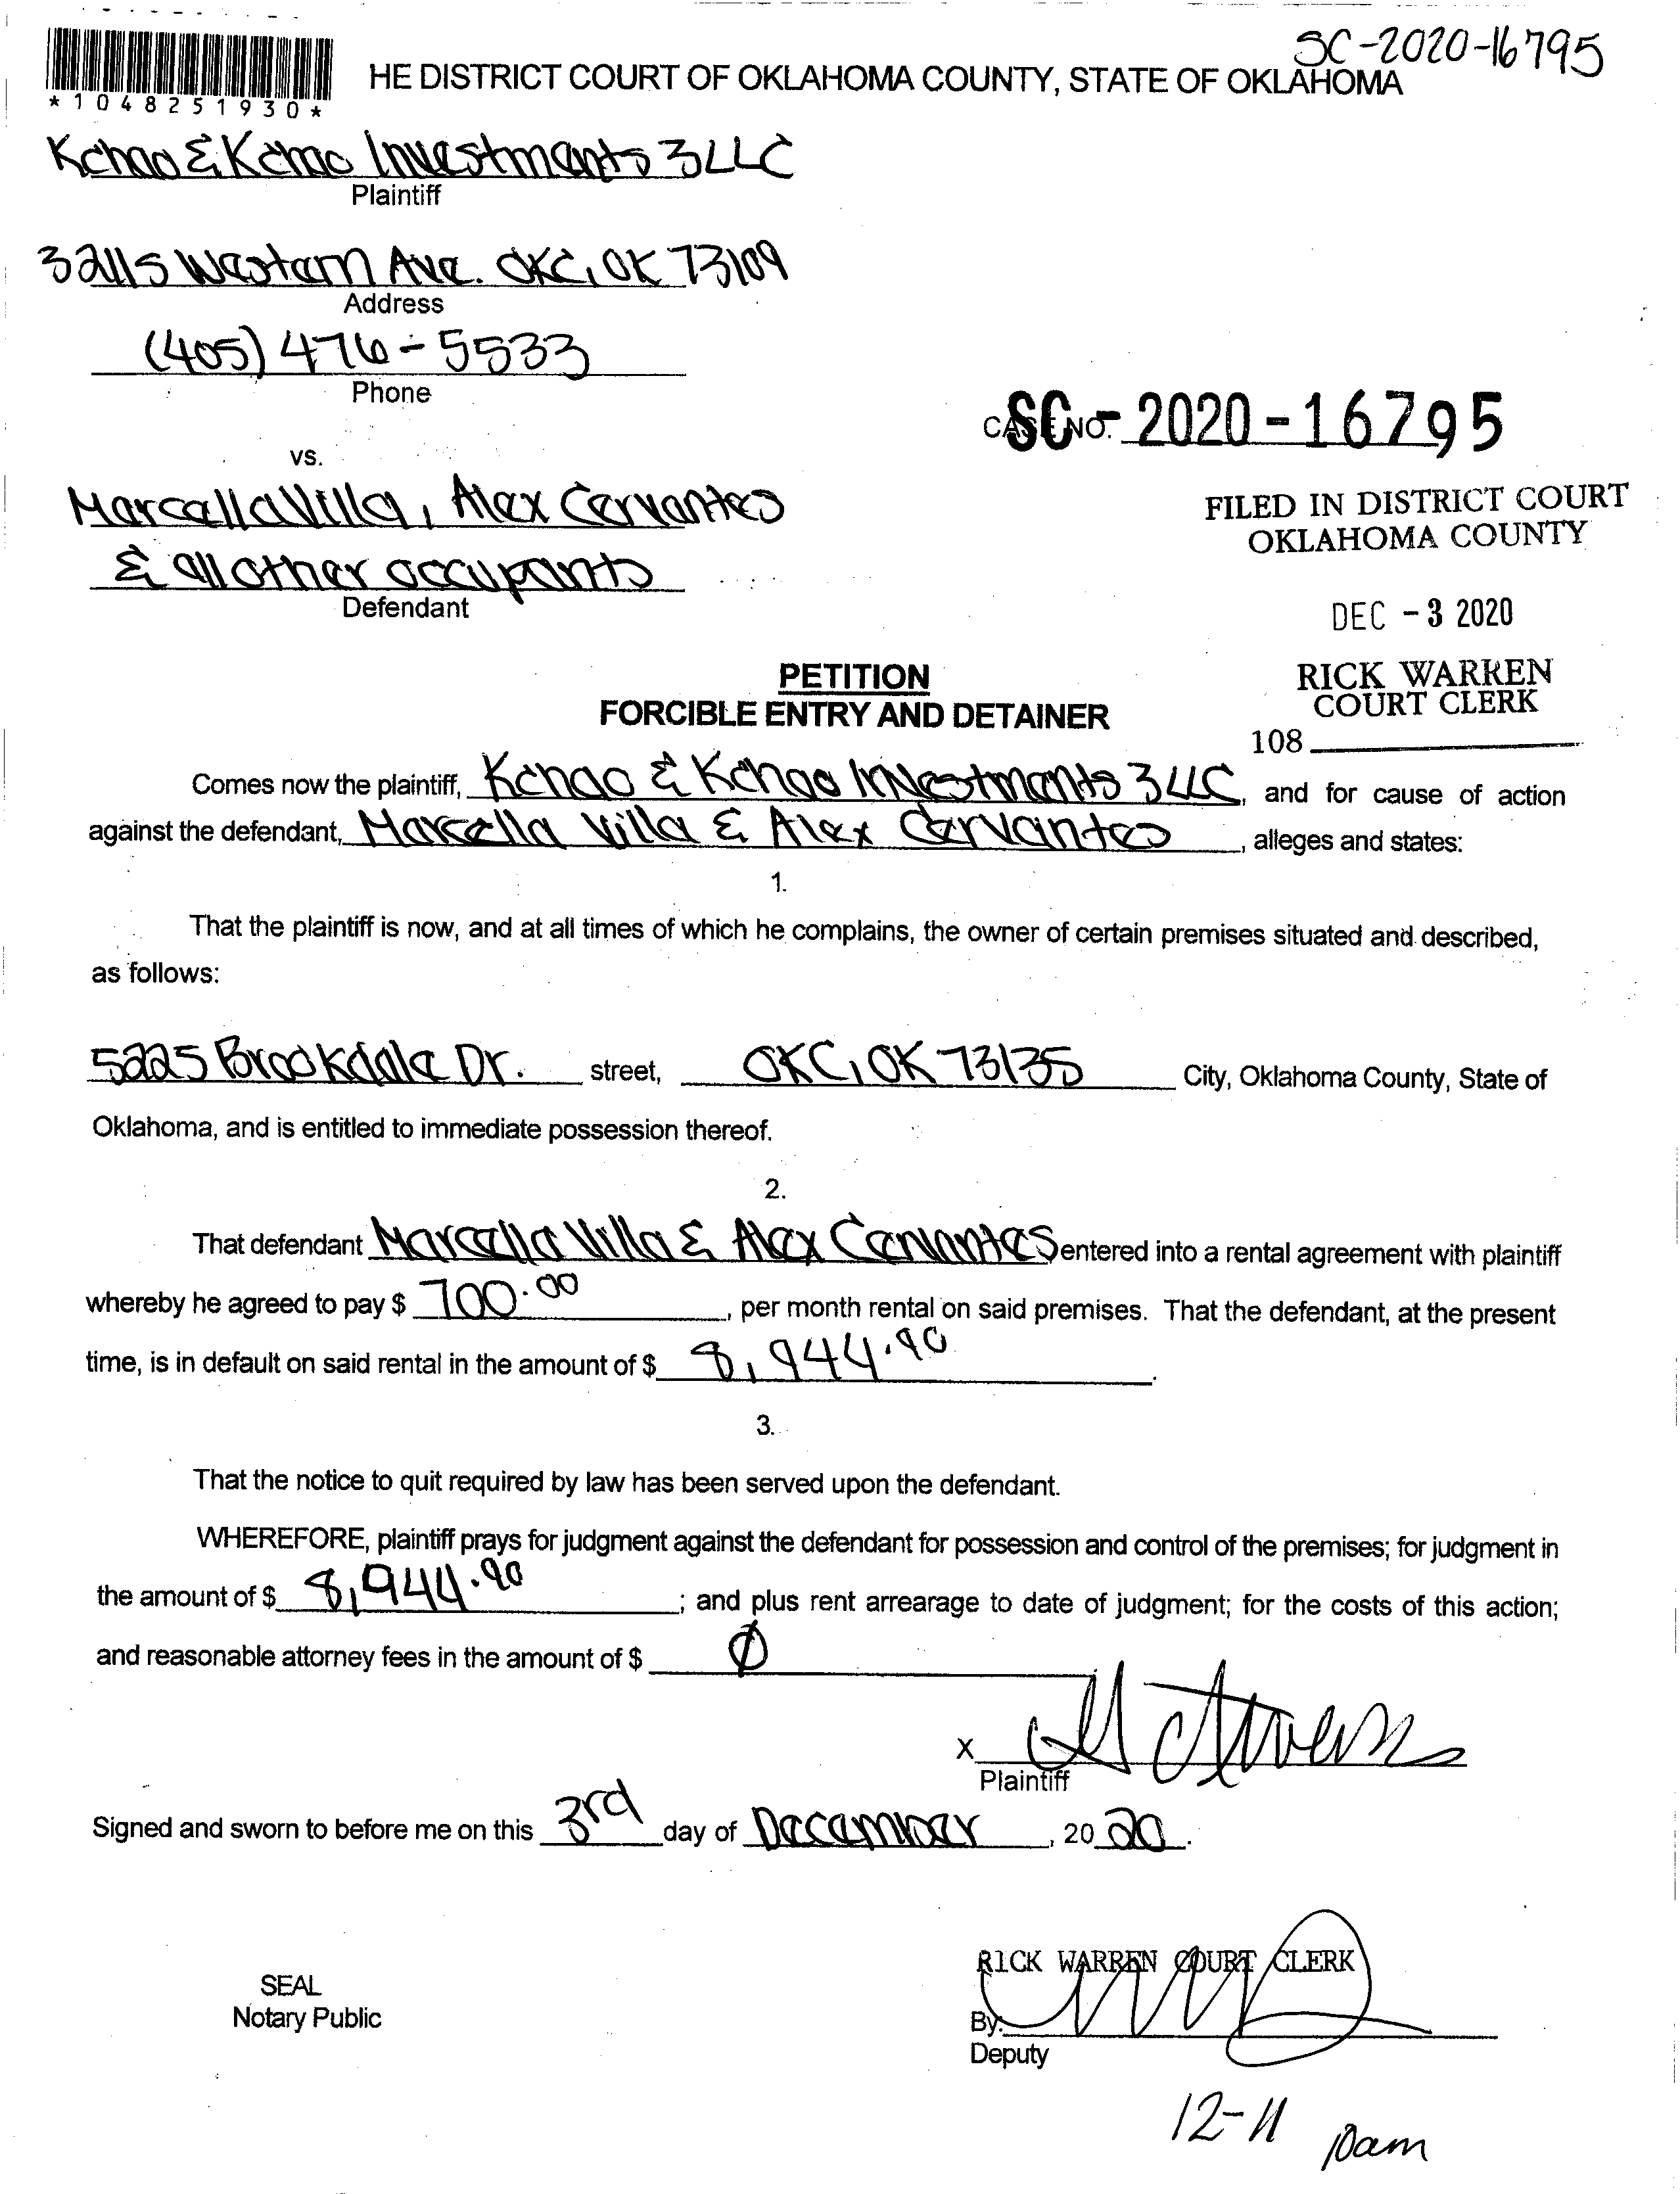 SC-2020-16795
HE DISTRICT COURT OF OKLAHOMA COUNTY, STATE OF OKLAHOMA
*1048251930*
Kchao & Kchao Investments 3 LLC
Plaintiff
3211 S Western Ave. OKC, OK 73109
Address
(405) 476-5533
Phone
CASE NO. SC-2020-16795
vs.
Marcella Villa, Alex Cervantes
& all other occupants
Defendant
FILED IN DISTRICT COURT
OKLAHOMA COUNTY
DEC -3 2020
RICK WARREN
COURT CLERK
108
PETITION
FORCIBLE ENTRY AND DETAINER
Comes now the plaintiff, Kchao & Kchao Investments 3 LLC, and for cause of action
against the defendant, Marcella Villa & Alex Cervantes, alleges and states:
1.
That the plaintiff is now, and at all times of which he complains, the owner of certain premises situated and described,
as follows:
5225 Brookdale Dr. street, OKC, OK 73135 City, Oklahoma County, State of
Oklahoma, and is entitled to immediate possession thereof.
2.
That defendant Marcella Villa & Alex Cervantes entered into a rental agreement with plaintiff
whereby he agreed to pay $ 700.00, per month rental on said premises. That the defendant, at the present
time, is in default on said rental in the amount of $ 8,944.90.
3.
That the notice to quit required by law has been served upon the defendant.
WHEREFORE, plaintiff prays for judgment against the defendant for possession and control of the premises; for judgment in
the amount of $ 8,944.90; and plus rent arrearage to date of judgment; for the costs of this action;
and reasonable attorney fees in the amount of $ Ø
X
Plaintiff
Signed and sworn to before me on this 3rd day of December, 2020.
RICK WARREN COURT CLERK
SEAL
Notary Public
By:
Deputy
12-11 10am